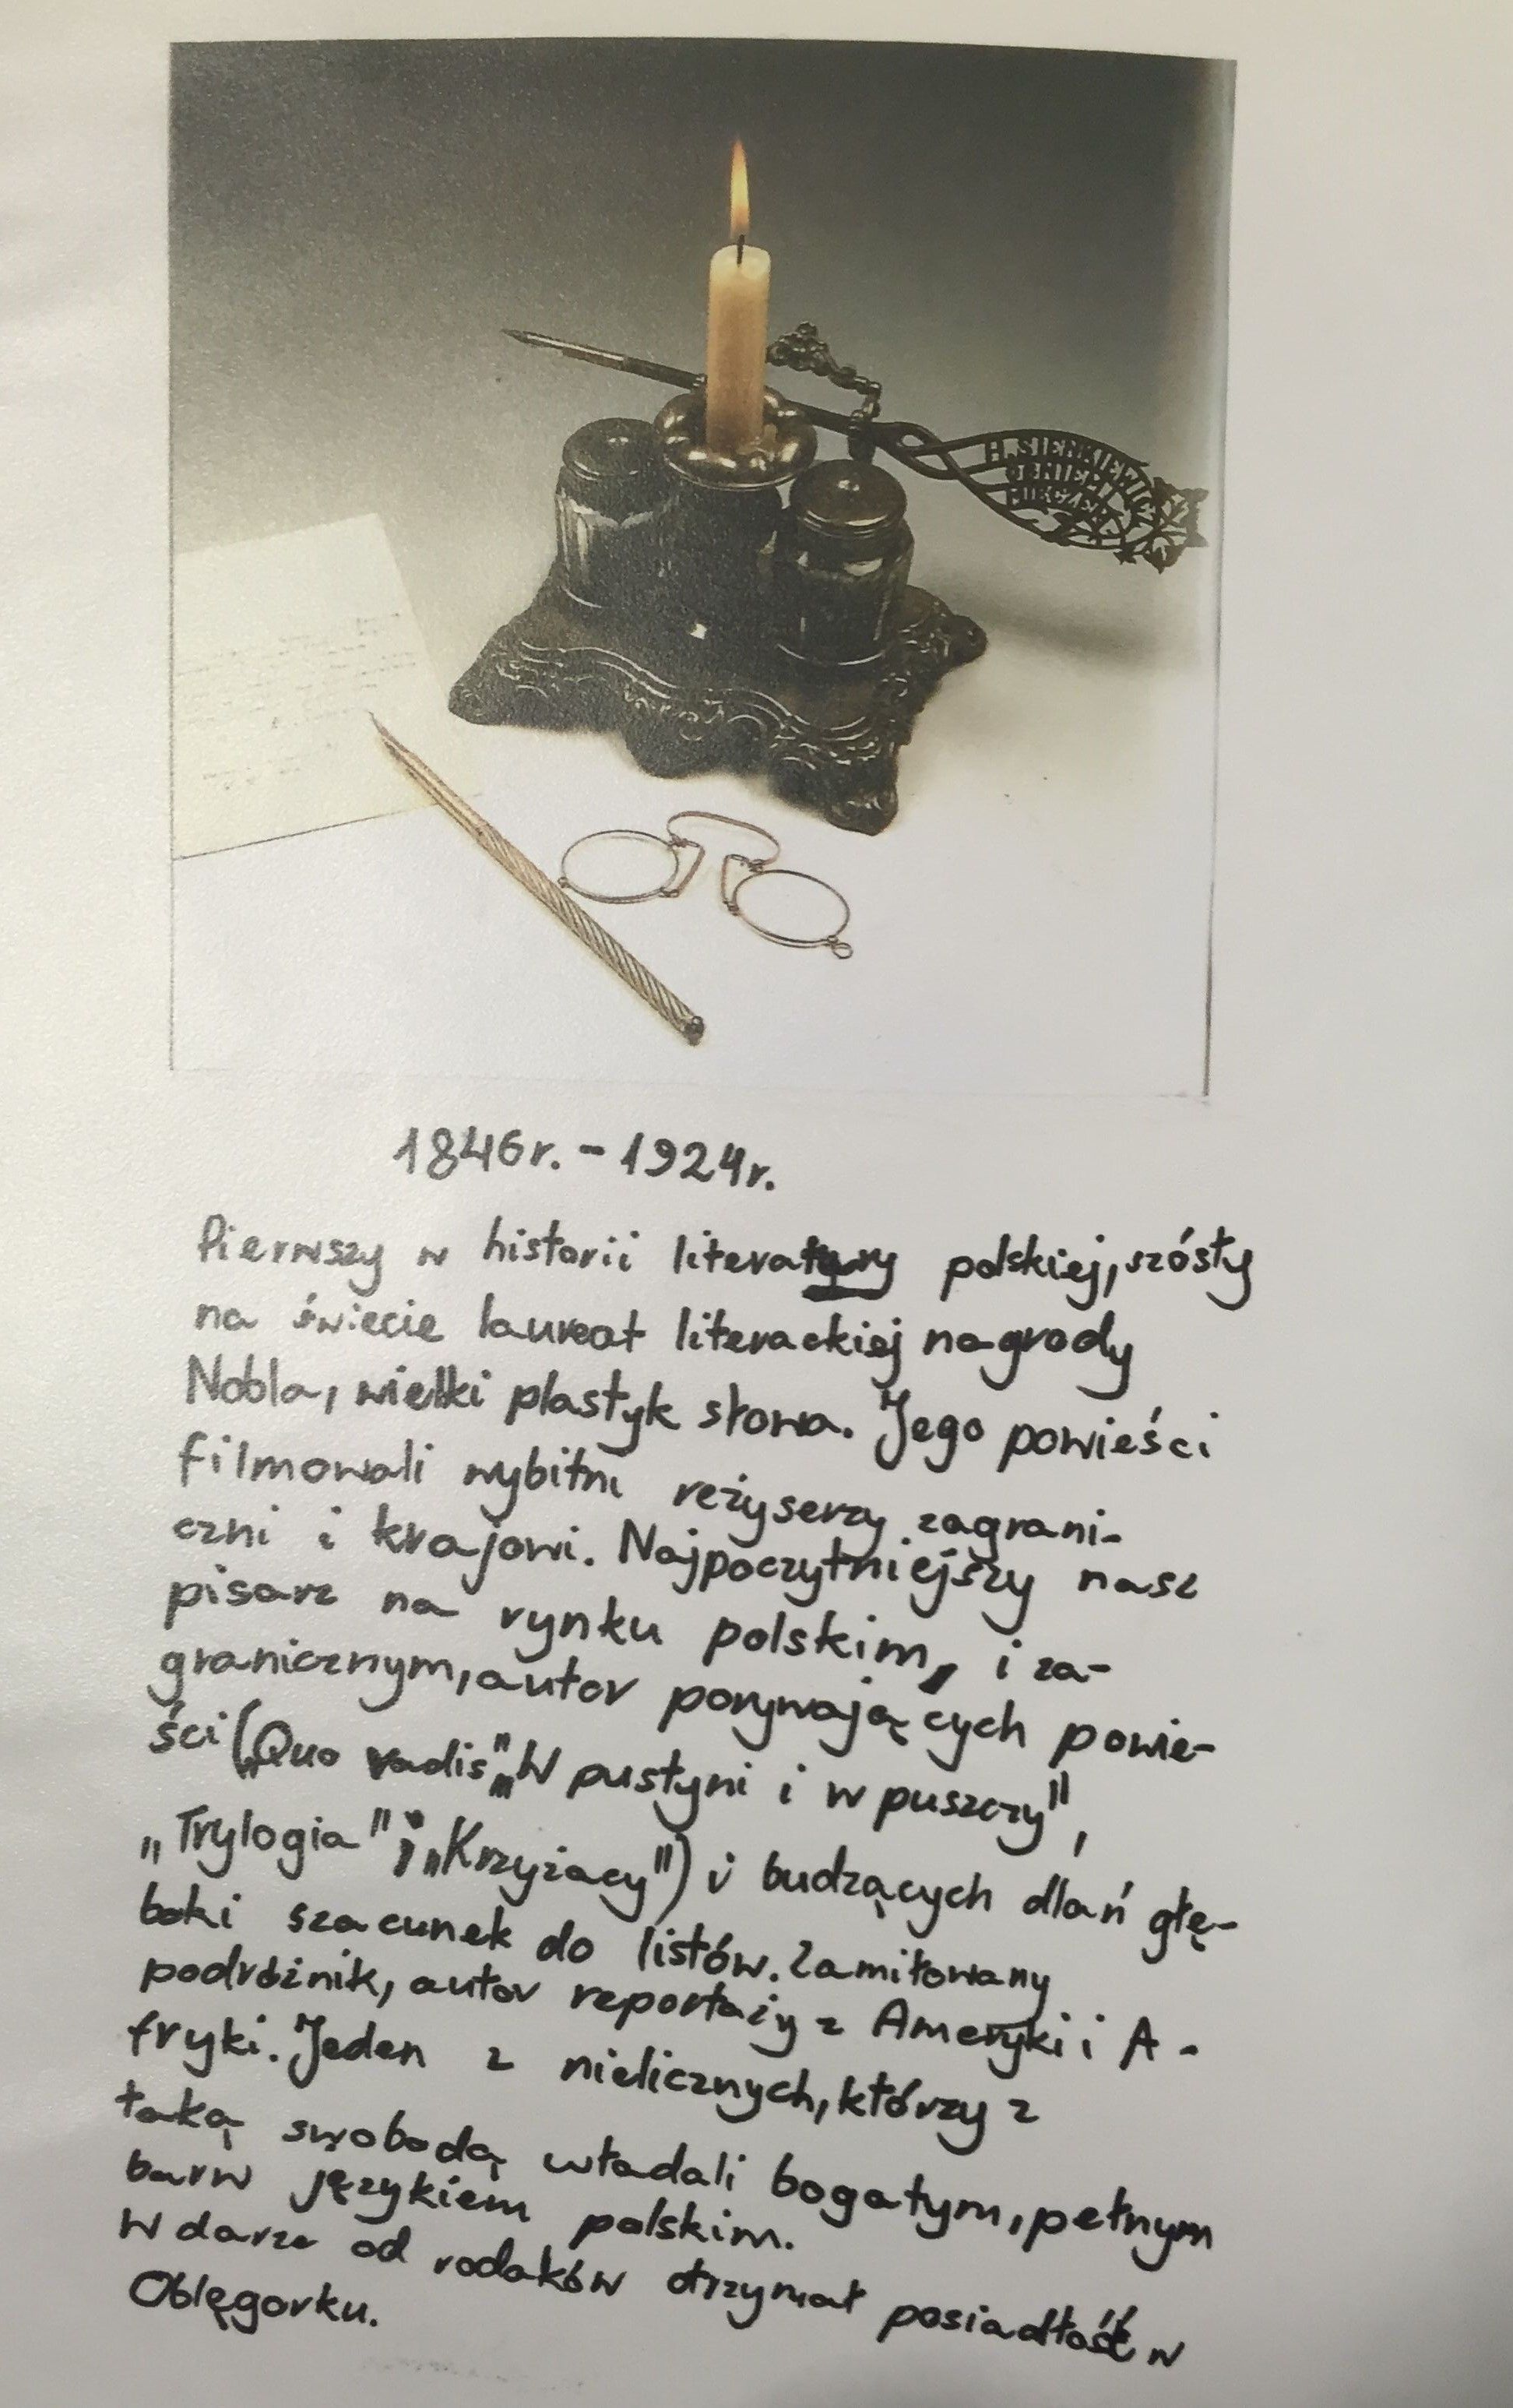 H. SIENKIEWICZ
OGNIEM I
MIECZEM
1846r. - 1924r.
Pierwszy w historii literatury polskiej, szósty
na świecie laureat literackiej nagrody
Nobla, wielki plastyk słowa. Jego powieści
filmowali wybitni reżyserzy zagrani-
czni i krajowi. Najpoczytniejszy nasz
pisarz na rynku polskim, i za-
granicznym, autor porywających powie-
ści („Quo vadis", „W pustyni i w puszczy",
„Trylogia" i „Krzyżacy") i budzących dlań głę-
boki szacunek do listów. Zamiłowany
podróżnik, autor reportaży z Ameryki i A-
fryki. Jeden z nielicznych, którzy z
taką swobodą władali bogatym, pełnym
barw językiem polskim.
W darze od rodaków otrzymał posiadłość w
Oblęgorku.